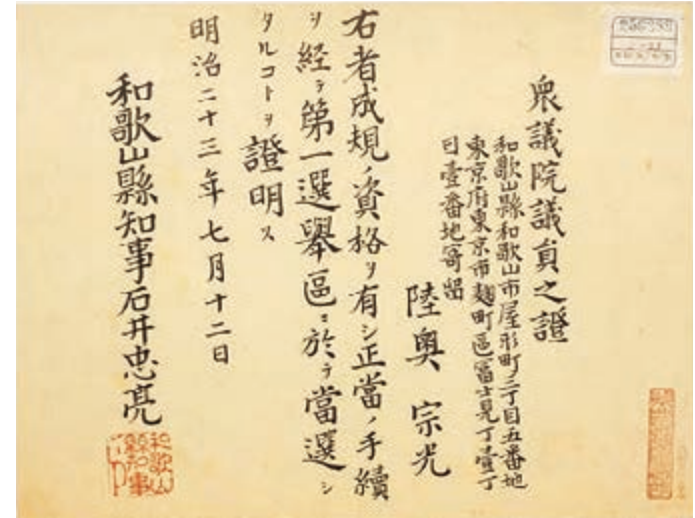 衆議院議員之證
和歌山縣和歌山市屋形町二丁目五番地
東京府東京市麹町區冨士見丁壹丁
目壹番地寄留
陸奥宗光
右者成規ノ資格ヲ有シ正當ノ手續
ヲ経テ第一選擧區ニ於テ當選シ
タルコトヲ證明ス
明治二十三年七月十二日
和歌山縣知事石井忠亮
和歌山縣知事之印